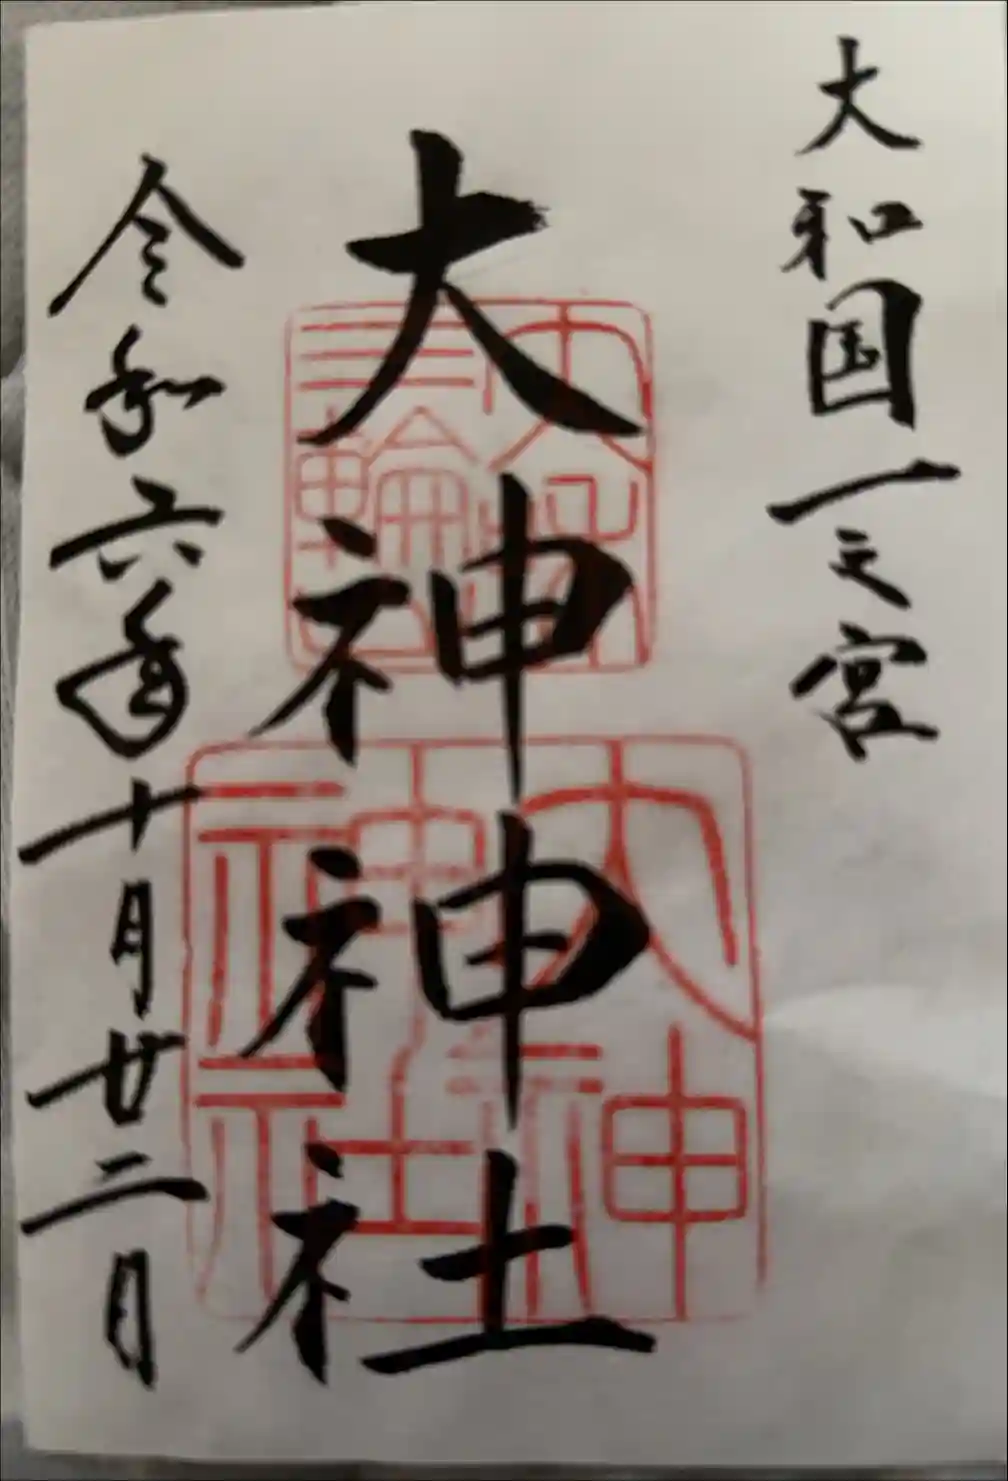 大和国一之宮
大神神社
令和六年十月廿二日
大神
神社